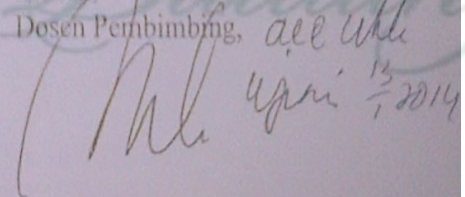 Dosen Pembimbing, acc utk
ujian 13/1 2014